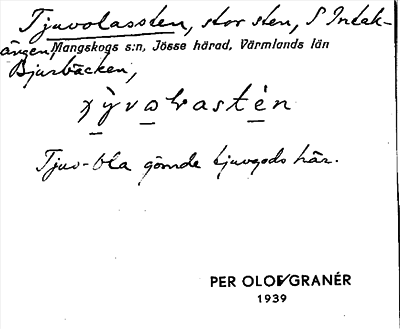 Tjuvolassten, stor sten, S Intak-
ängen, Mangskogs s:n, Jösse härad, Värmlands län
Bjurbäcken,
Tjuv-Ola gömde tjuvgods här.
PER OLOF GRANÉR
1939